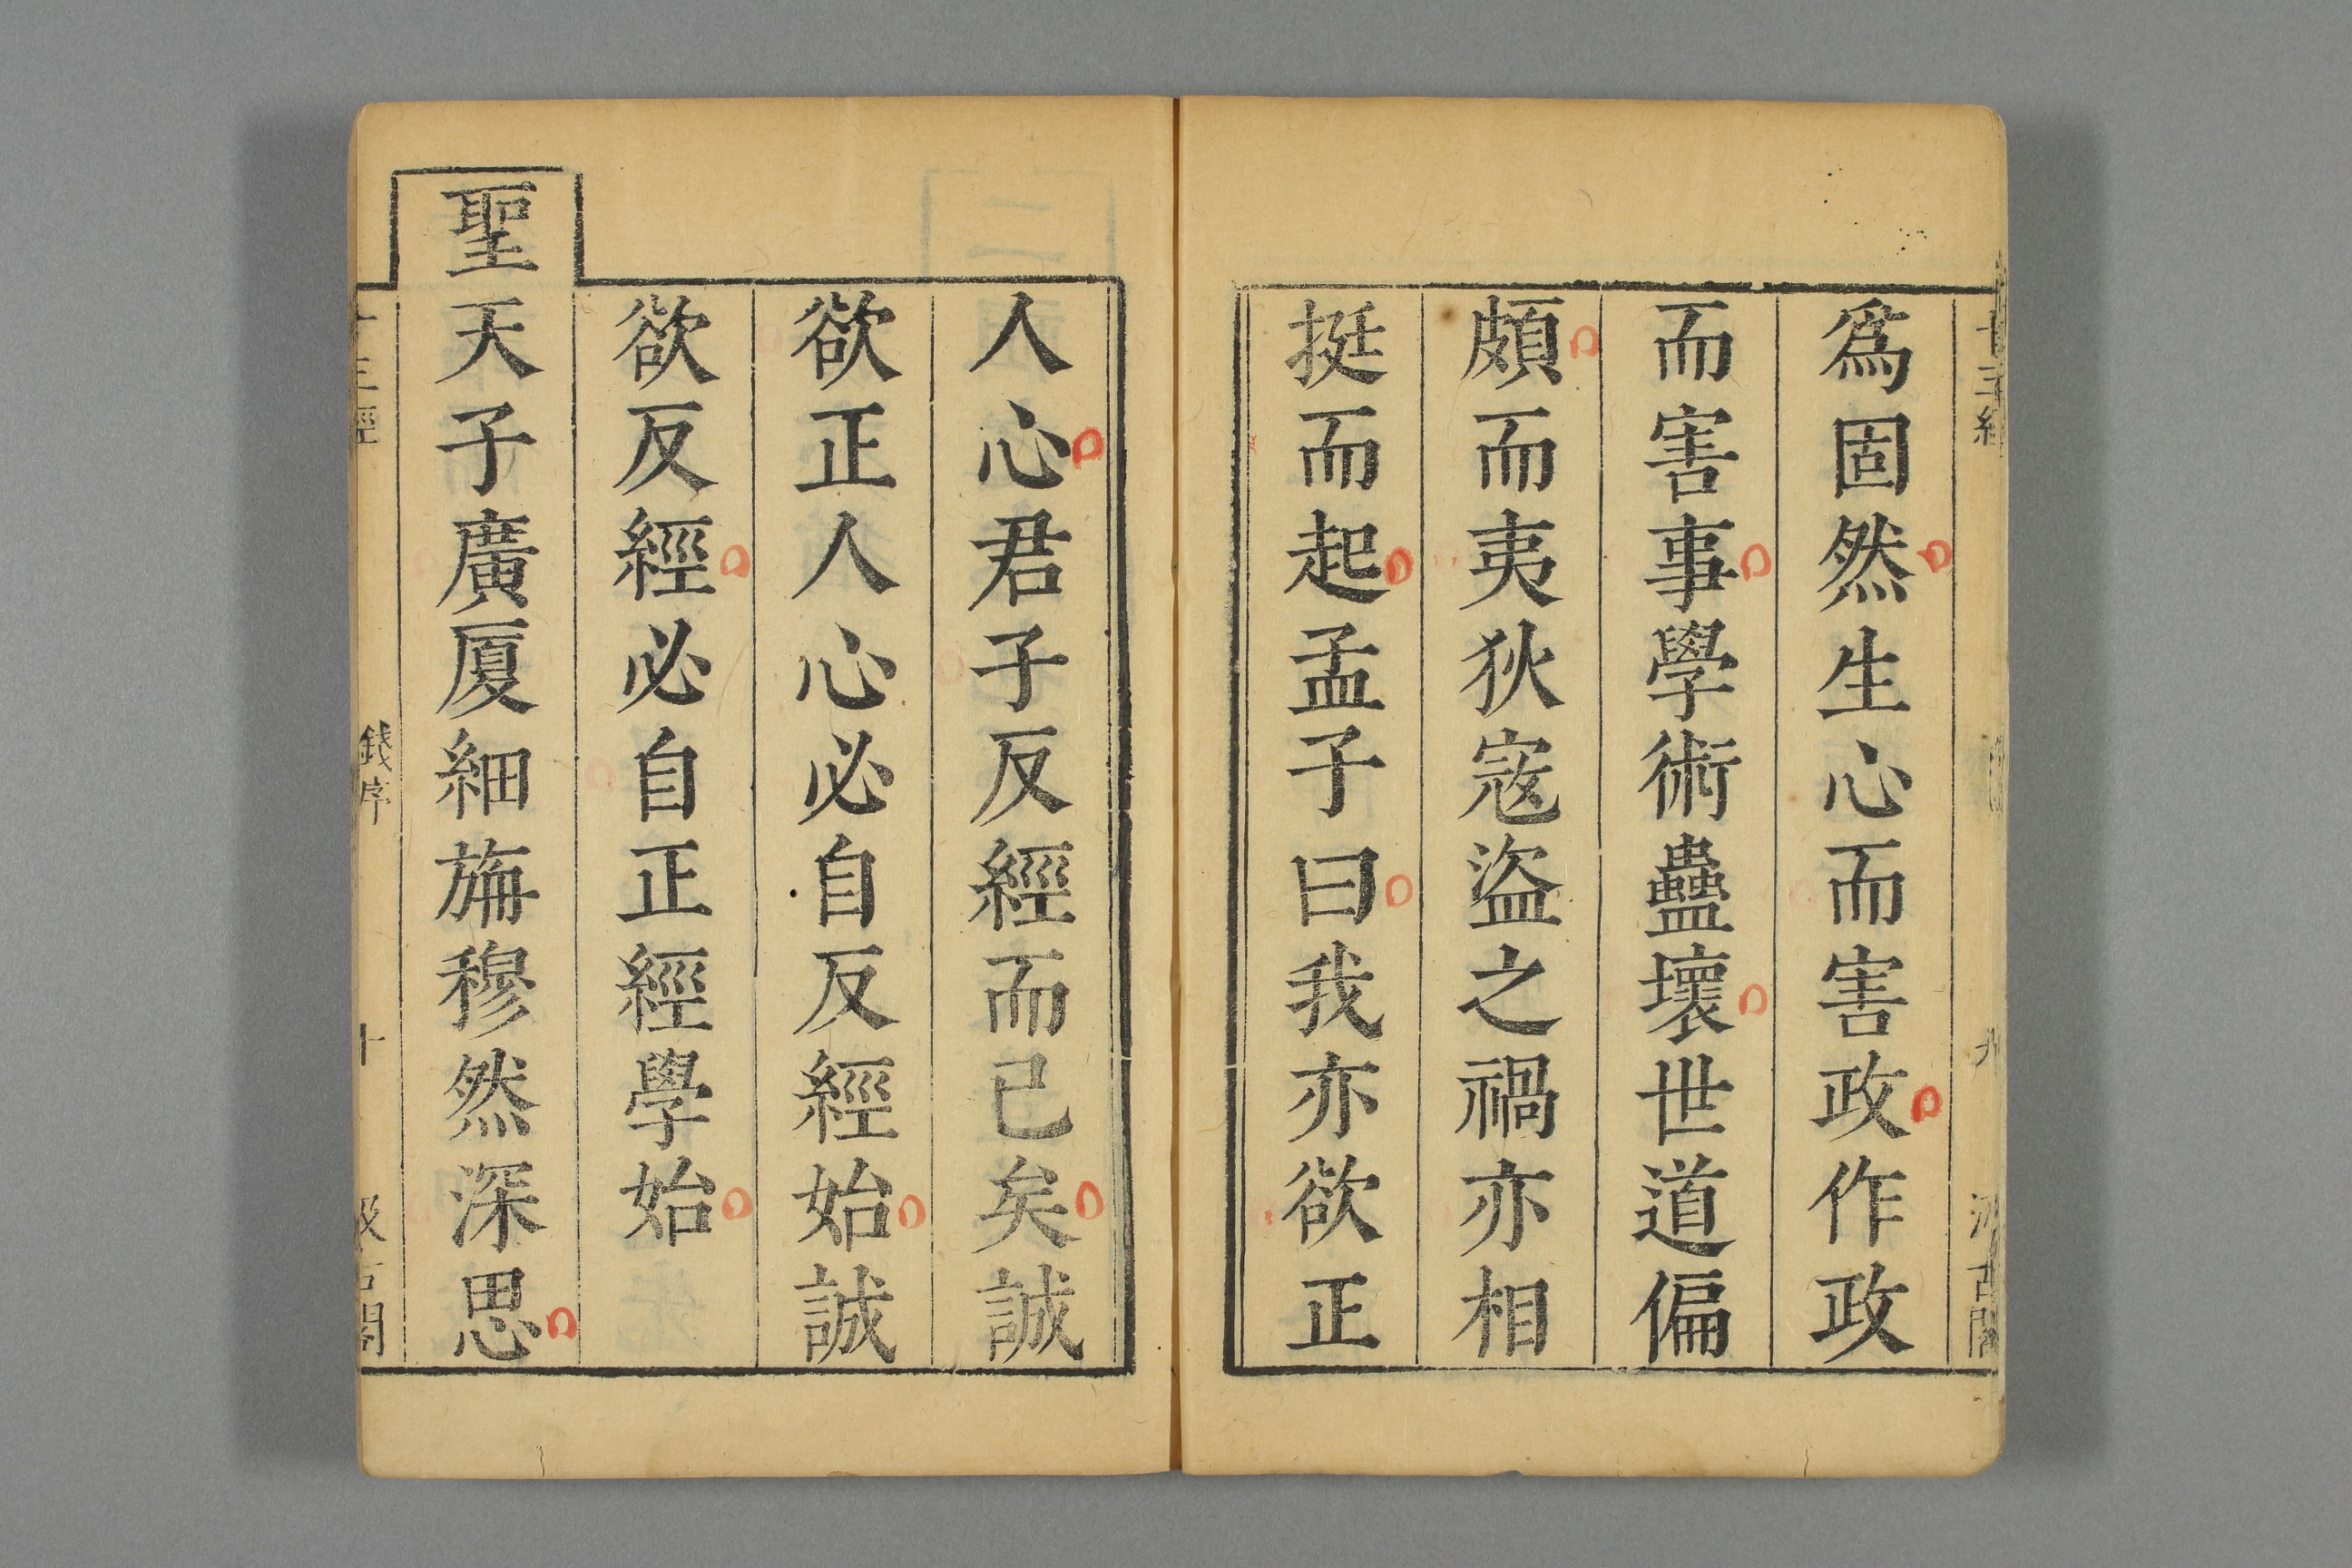 十三經
九
汲古閣
爲固然生心而害政作政
而害事學術蠱壞世道偏
頗而夷狄寇盜之禍亦相
挺而起孟子曰我亦欲正
人心君子反經而已矣誠
欲正人心必自反經始誠
欲反經必自正經學始
聖天子廣厦細旃穆然深思
十三經
錢序
十
汲古閣